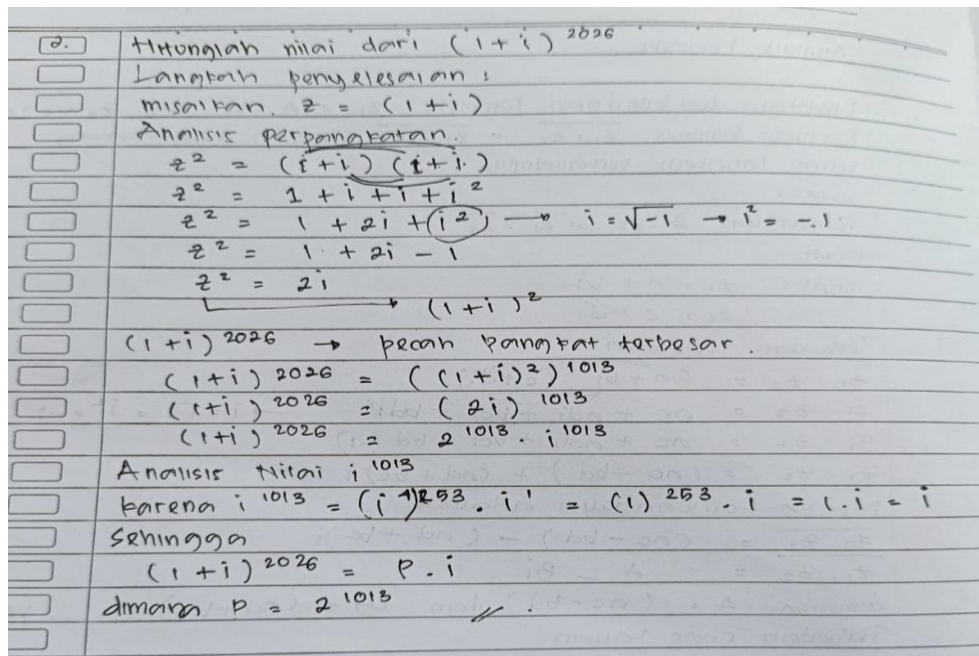 2. Hitunglah nilai dari (1+i)^2026
Langkah penyelesaian :
misalkan z = (1+i)
Analisis perpangkatan
z^2 = (1+i) (1+i)
z^2 = 1 + i + i + i^2
z^2 = 1 + 2i + i^2 → i = √-1 → i^2 = -1
z^2 = 1 + 2i - 1
z^2 = 2i
→ (1+i)^2
(1+i)^2026 → pecah pangkat terbesar.
(1+i)^2026 = ((1+i)^2)^1013
(1+i)^2026 = (2i)^1013
(1+i)^2026 = 2^1013 . i^1013
Analisis Nilai i^1013
karena i^1013 = (i^4)^253 . i^1 = (1)^253 . i = 1.i = i
Sehingga
(1+i)^2026 = P . i
dimana P = 2^1013 //.